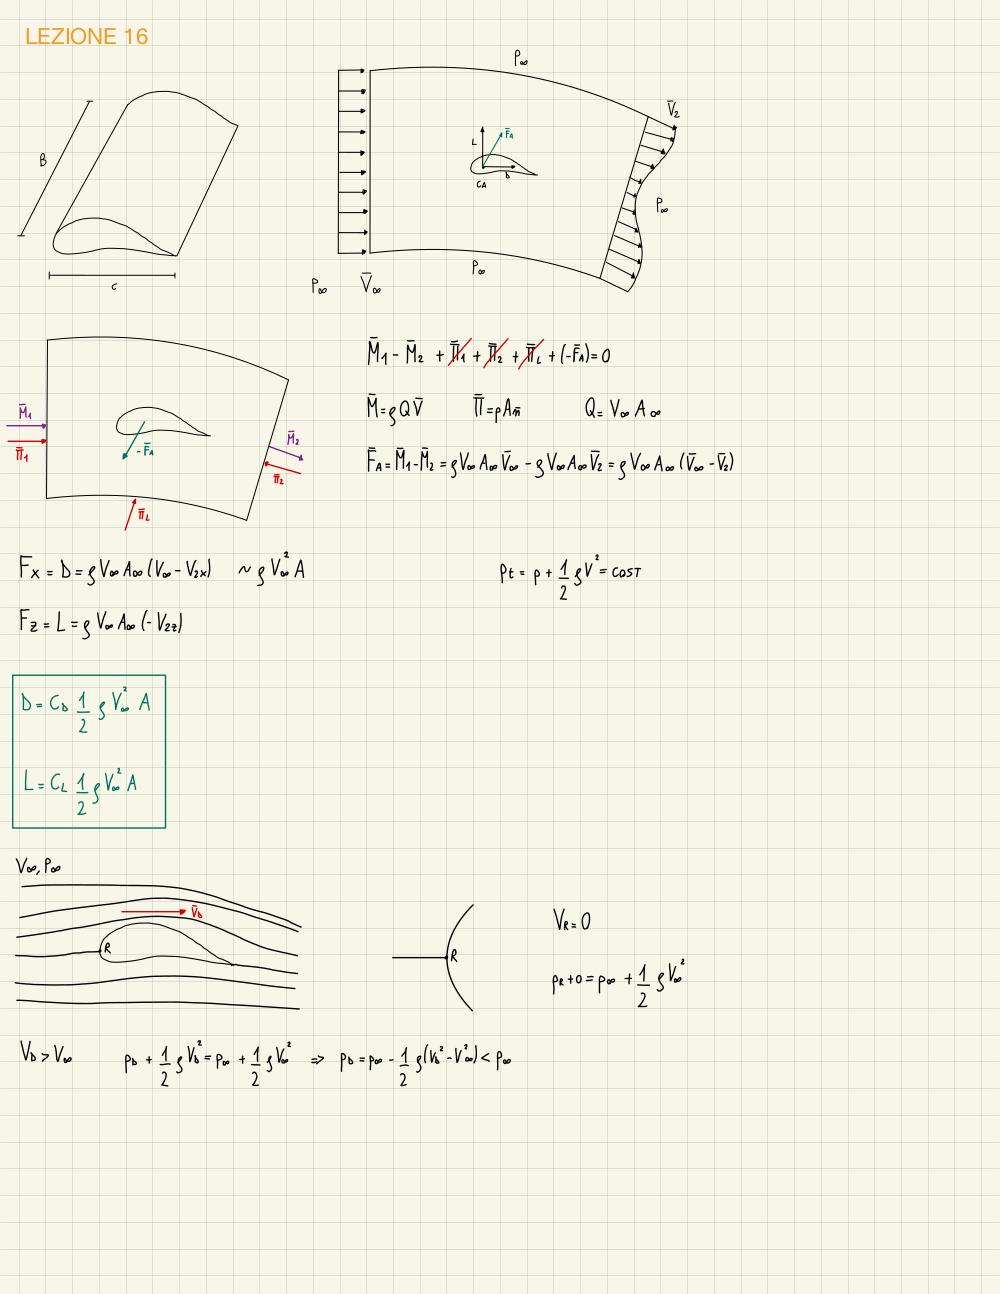 LEZIONE 16
P∞
V̄₂
B
L
F̄A
D
CA
P∞
C
P∞
P∞ V̄∞
M̄₁ - M̄₂ + Π̄₁ + Π̄₂ + Π̄L + (-F̄A) = 0
M̄ = ρQV̄ Π̄ = pAn̄ Q = V∞ A∞
M̄₁
Π̄₁
-F̄A
M̄₂
Π̄₂
Π̄L
F̄A = M̄₁ - M̄₂ = ρV∞A∞V̄∞ - ρV∞A∞V̄₂ = ρV∞A∞(V̄∞ - V̄₂)
Fx = D = ρV∞A∞(V∞ - V₂x) ~ ρV∞²A
pt = p + 1/2 ρV² = COST
Fz = L = ρV∞A∞(-V₂z)
D = CD 1/2 ρV∞² A
L = CL 1/2 ρV∞² A
V∞, P∞
V̄D
R
R
VR = 0
pR + 0 = p∞ + 1/2 ρV∞²
VD > V∞ pD + 1/2 ρVD² = p∞ + 1/2 ρV∞² => pD = p∞ - 1/2 ρ(VD² - V∞²) < p∞